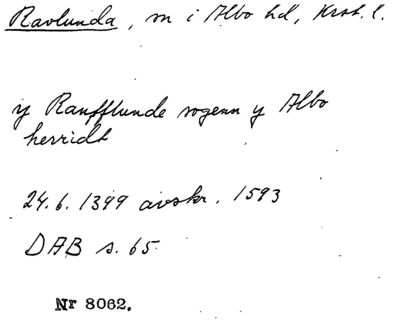 Ravlunda, sn i Albo hd, Krst. l.
iy Ranfflunde sogenn y Albo
herridt
24.6. 1399 avskr. 1593
DAB s. 65
Nr 8062.